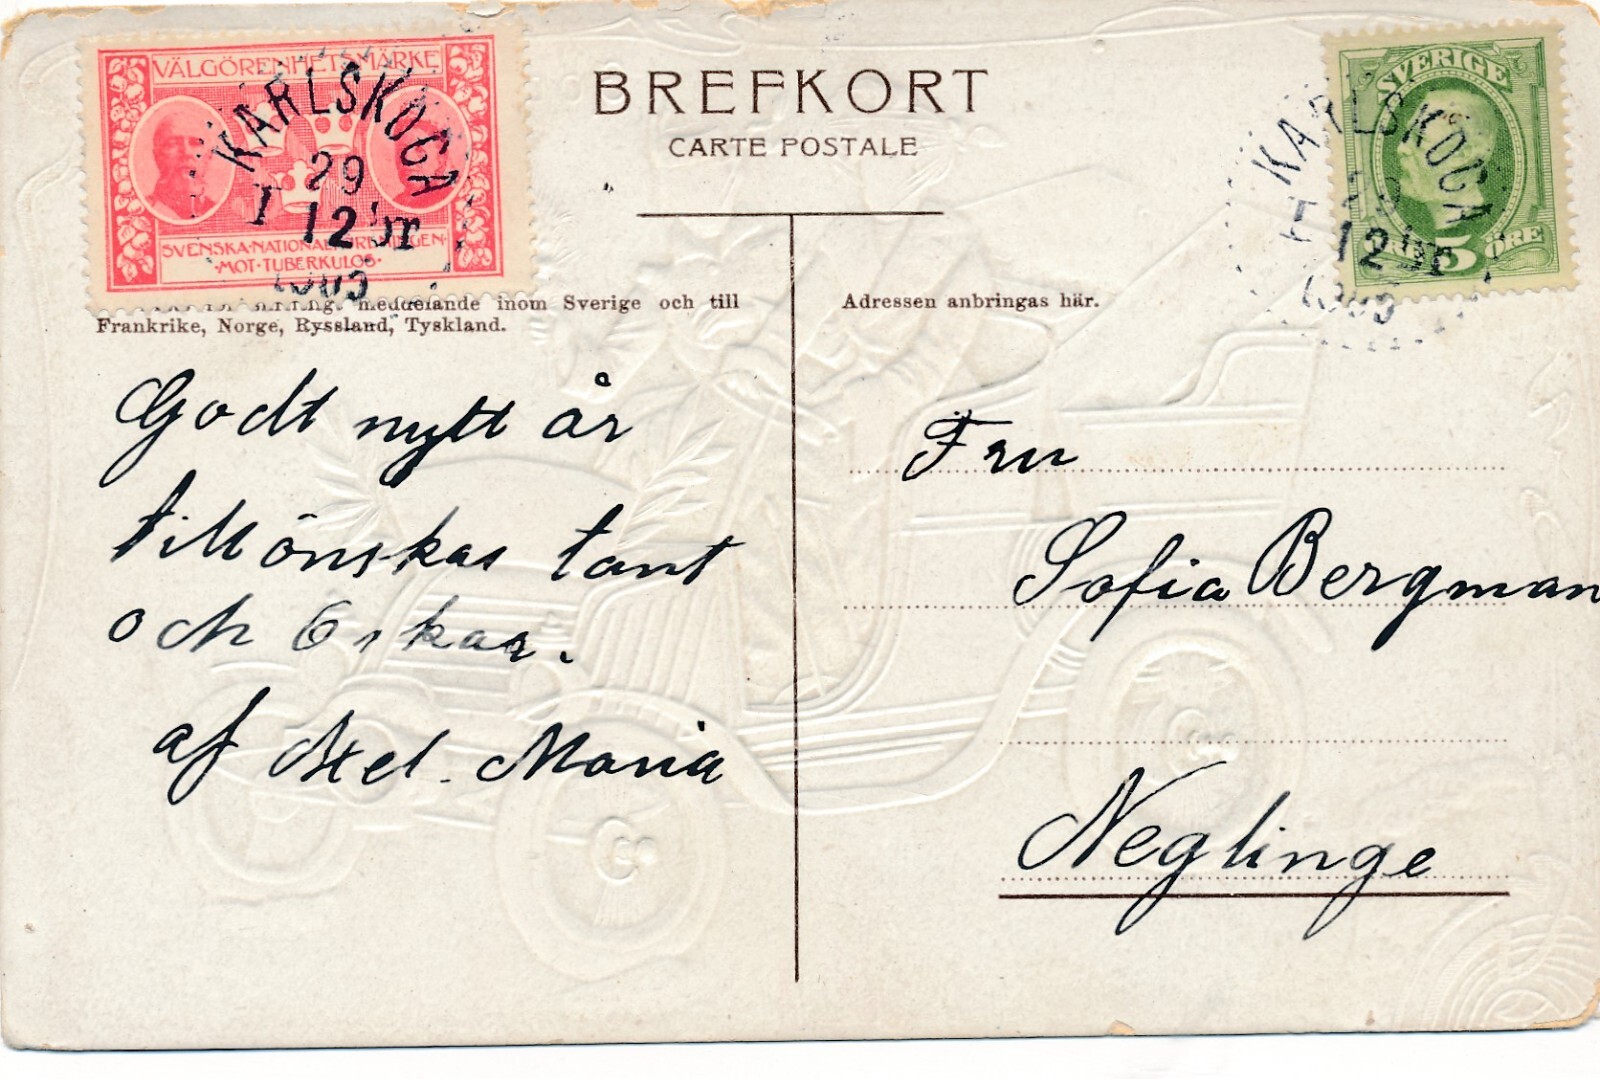 VÄLGÖRENHETSMÄRKE
SVENSKA·NATIONALFÖRENINGEN·
·MOT·TUBERKULOS·
KARLSKOGA
29
I 12
BREFKORT
CARTE POSTALE
SVERIGE
5 ÖRE
KARLSKOGA
12
meddelande inom Sverige och till
Frankrike, Norge, Ryssland, Tyskland.
Adressen anbringas här.
Godt nytt år
tillönskas tant
och Oskar.
af Axel - Maria
Fru
Sofia Bergman
Neglinge